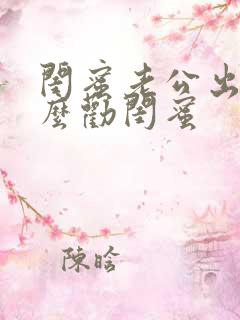 閨蜜老公出
麼勸閨蜜
陳晗